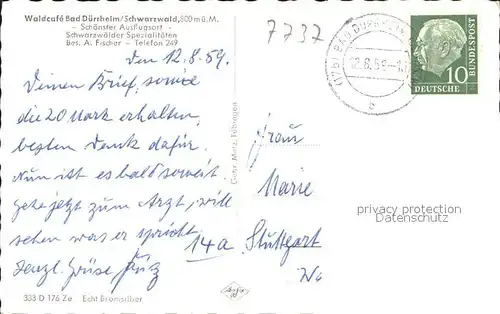 Waldcafé Bad Dürrheim/Schwarzwald, 800 m ü. M.
– Schönster Ausflugsort –
Schwarzwälder Spezialitäten
Bes. A. Fischer – Telefon 249
7737
den 12.8.59.
Deinen Brief, sowie
die 20 Mark erhalten,
besten Dank dafür.
Nun ist es bald soweit
gehe jetzt zum Arzt, will
sehen was er spricht
herzl. Grüße Fritz
Gebr. Metz, Tübingen
(17b) BAD DÜRRHEIM
12.8.59
b
10
DEUTSCHE
BUNDESPOST
Frau
Marie
14a Stuttgart
privacy protection
Datenschutz
333 D 176 Ze Echt Bromsilber
Agfa